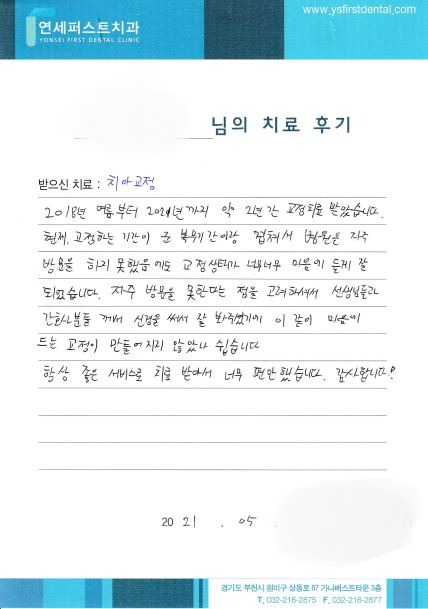 www.ysfirstdental.com
연세퍼스트치과
YONSEI FIRST DENTAL CLINIC
님의 치료 후기
받으신 치료 : 치아교정
2018년 여름부터 2021년까지 약 2년간 교정치료 받았습니다.
현재, 교정하는 기간이 군 복무기간이랑 겹쳐서 병원은 자주
방문을 하지 못했음에도 교정상태가 너무너무 마음에 들게 잘
되었습니다. 자주 방문을 못한다는 점을 고려하셔서 선생님들과
간호사분들 께서 신경을 써서 잘 봐주셨기에 이 같이 마음에
드는 교정이 만들어지지 않았나 싶습니다
항상 좋은 서비스로 치료 받아서 너무 편안했습니다. 감사합니다!
2021 . 05
경기도 부천시 원미구 상동로 87 가나베스트타운 3층
T. 032-216-2875 F. 032-216-2877